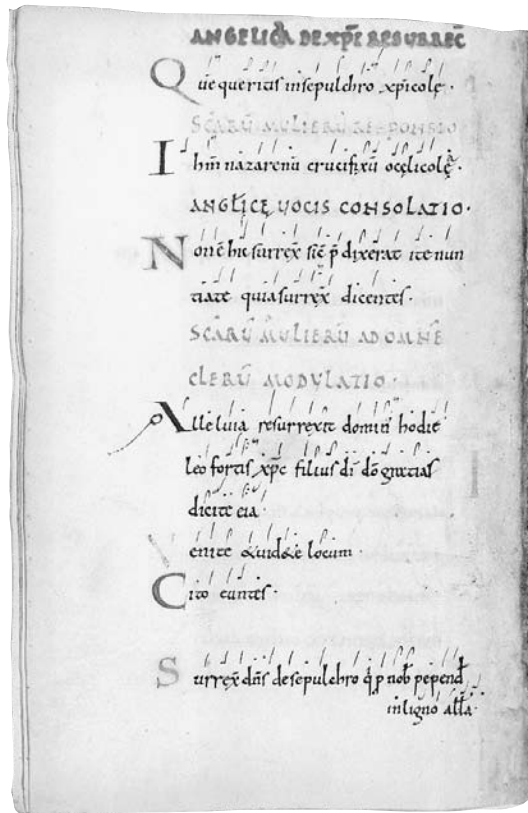 ANGELICA DE XPI RESURREC̄
Que queritis in sepulchro xp̄icolę ·
SCĀRŪ MULIERŪ RESPONSIO
Ihm̄ nazarenū crucifixū o cęlicolę ·
ANGELICĘ VOCIS CONSOLATIO ·
Non ē hic surrex̄ sic̄ p̄dixerat ite nun
tiate quia surrex̄ dicentes
SCĀRŪ MULIERŪ AD OMNĒ
CLERŪ MODULATIO ·
Alleluia resurrexit dominꝰ hodie
leo fortis xp̄c filius dī dō gratias
dicite eia ·
Venite &uid&e locum ·
Cito euntes ·
Surrex̄ dn̄s de sepulchro q̄ p nob̄ pepend̄
in ligno all̄a ·